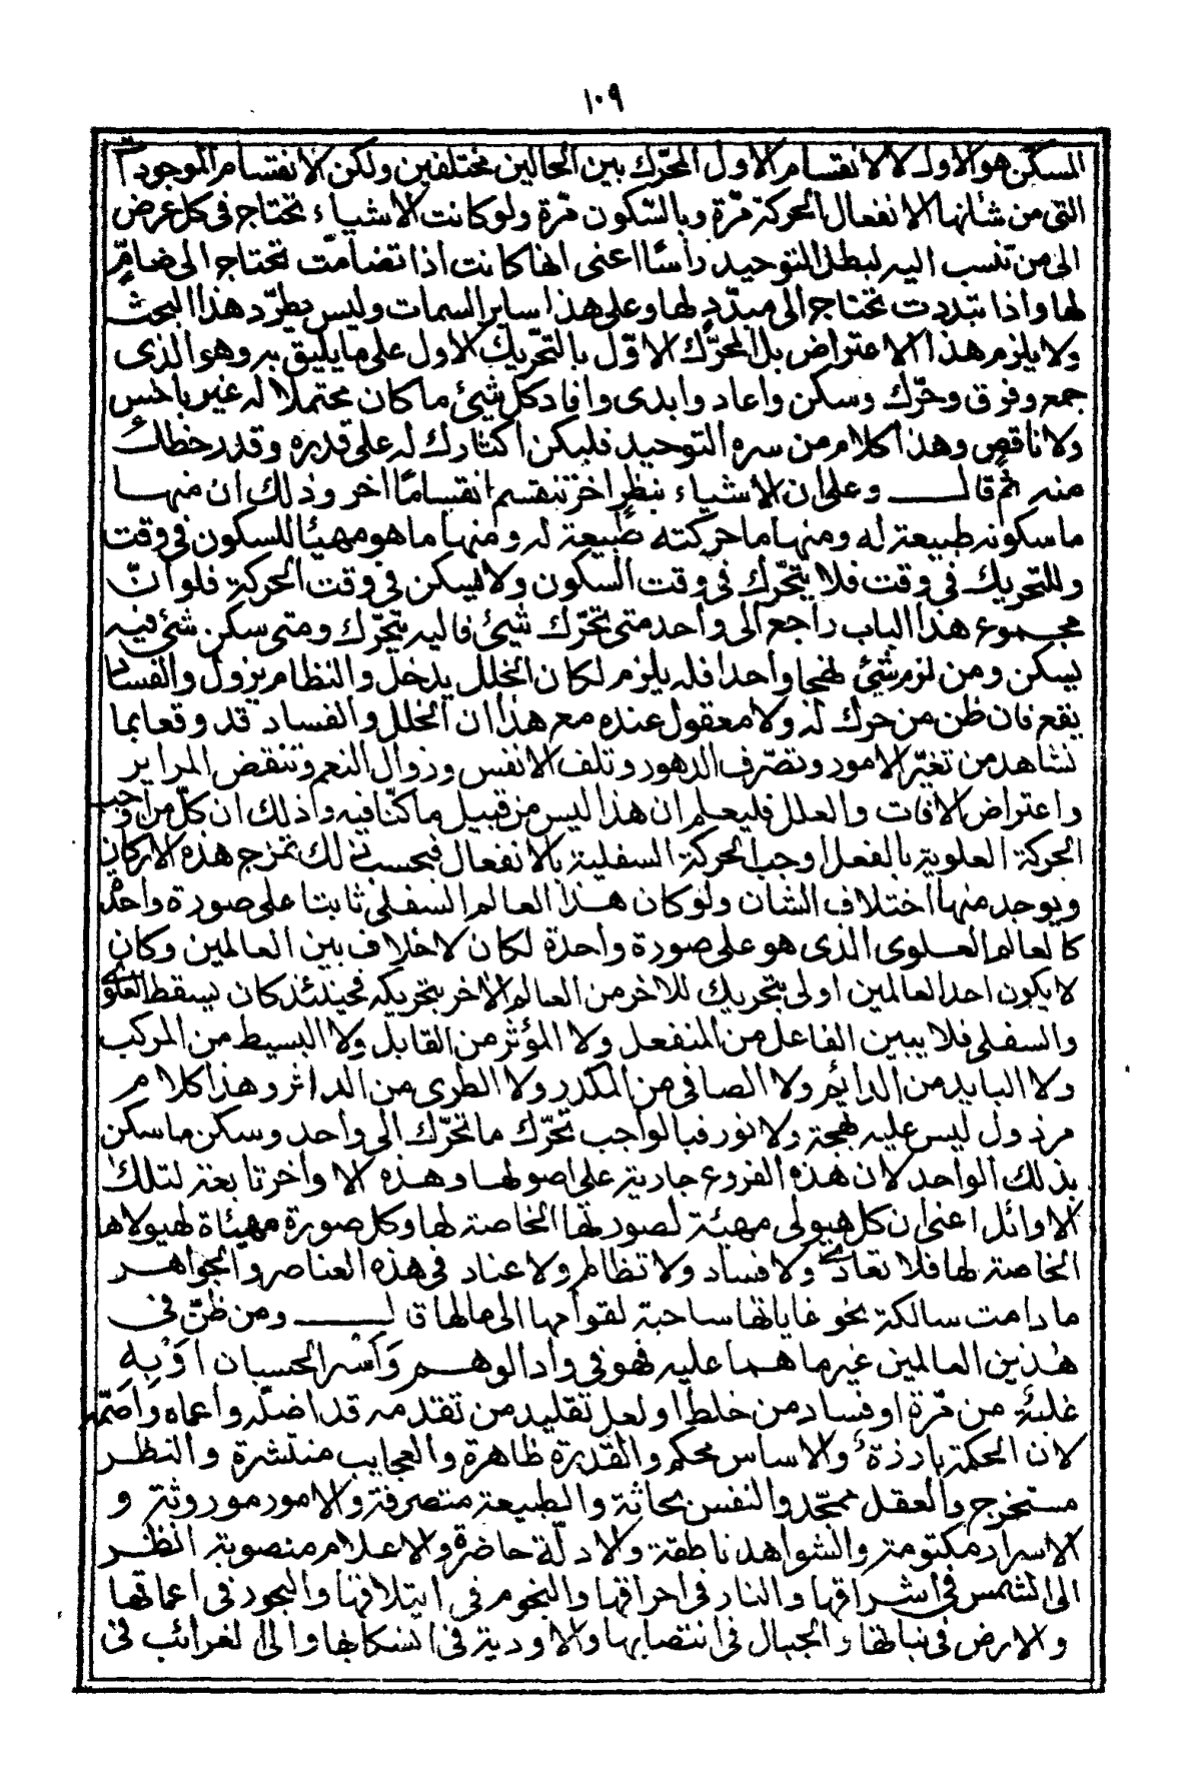 ١٠٩
المسكّن هو الاول لا لانقسام الاول المحرّك بين الحالين مختلفين ولكن لانقسام الموجودات
التى من شانها الانفعال الحركة مرّة وبالسّكون مرّة ولو كانت الاشياء تحتاج فى كل عرض
الى من تنسب اليه لبطل التوحيد راسًا اعنى انها كانت اذا تضامّت تحتاج الى ضامّ
لها واذا تبددت تحتاج الى مبدّد لها وعلى هذا ساير السمات وليس يطرّد هذا البحث
ولا يلزم هذا الاعتراض بل المحرّك الاوّل بالتحريك الاول على ما يليق به وهو الذى
جمع وفرق وحرّك وسكن واعاد وابدى وافاد كل شيئ ما كان محتملا له غير باخس
ولا ناقص وهذا كلام من سره التوحيد فليكن اكثارك له على قدره وقدر حظك
منه ثم قال وعلى ان الاشياء بنظر اخر تنقسم انقسامًا اخر وذلك ان منها
ما سكونه طبيعة له ومنها ما حركته طبيعة له ومنها ما هو مهيئا للسكون فى وقت
وللتحريك فى وقت فلا يتحرّك فى وقت السكون ولا يسكن فى وقت الحركة فلو انّ
مجموع هذا الباب راجع الى واحد متى تحرّك شيئ فاليه يتحرّك ومتى سكن شئ فبه
يسكن ومن لزم شئ نهجا واحدا فله يلزم لكان الخلل يدخل والنظام يزول والفساد
يقع فان ظن من حرك له ولا معقول عنده مع هذا ان الخلل والفساد قد وقعا بما
نشاهد من تغيّر الامور وتصّرف الدهور وتلف الانفس وزوال النعم وتنقض المراير
واعتراض الافات والعلل فليعلم ان هذا ليس من قبيل ما كنّا فيه وذلك ان كلّ من اوجب
الحركة العلوية بالفعل اوجب الحركة السفلية بالانفعال فبحسب ذلك تمزج هذه الاركان
ويوجد منها اختلاف الشان ولو كان هذا العالم السفلى ثابتا على صورة واحدة
كالعالم العلوى الذى هو على صورة واحدة لكان لا خلاف بين العالمين وكان
لا يكون احد العالمين اولى بتحريك للاخر من العالم الاخر بتحريكه فحينئذ كان يسقط العلوى
والسفلى فلا يبين الفاعل من المنفعل ولا المؤثر من القابل ولا البسيط من المركب
ولا البايد من الدايم ولا الصافى من المكدر ولا الطرى من الداثر وهذا كلام
مرذول ليس عليه بهجة ولا نور فبالواجب تحرّك ما تحرّك الى واحد وسكن ما سكن
بذلك الواحد لان هذه الفروع جارية على اصولها وهذه الاواخر تابعة لتلك
الاوائل اعنى ان كل هيولى مهيئة لصورتها الخاصة لها وكل صورة مهيئاة لهيولاها
الخاصة لها فلا تعادى ولا فساد ولا تظالم ولا عناد فى هذه العناصر والجواهر
ما دامت سالكة نحو غاياتها ساحبة لقوامها الى مالها قال ومن ظنّ فى
هذين العالمين غير ما هما عليه فهو فى وادالوهم وَاَسْر الحسبان اَوْ بِهِ
غلبة من مّرة او فساد من خلط او لعل تقليد من تقدمه قد اضلّه واعماه واصمّه
لان الحكمة بارزة والاساس محكم والقدرة ظاهرة والعجايب منتشرة والنظر
مستخرج والعقل ممجّد والنفس بحاثة والطبيعة متصرفة والامور موروثة و
الاسرار مكتومة والشواهد ناطقة والادلّة حاضرة والاعلام منصوبة انظر
الى الشمس فى اشراقها والنار فى احراقها والنجوم فى ايتلاقها والبحور فى اعماقها
والارض فى نباتها والجبال فى انتصابها والاودية فى انسكابها والى الغرائب فى